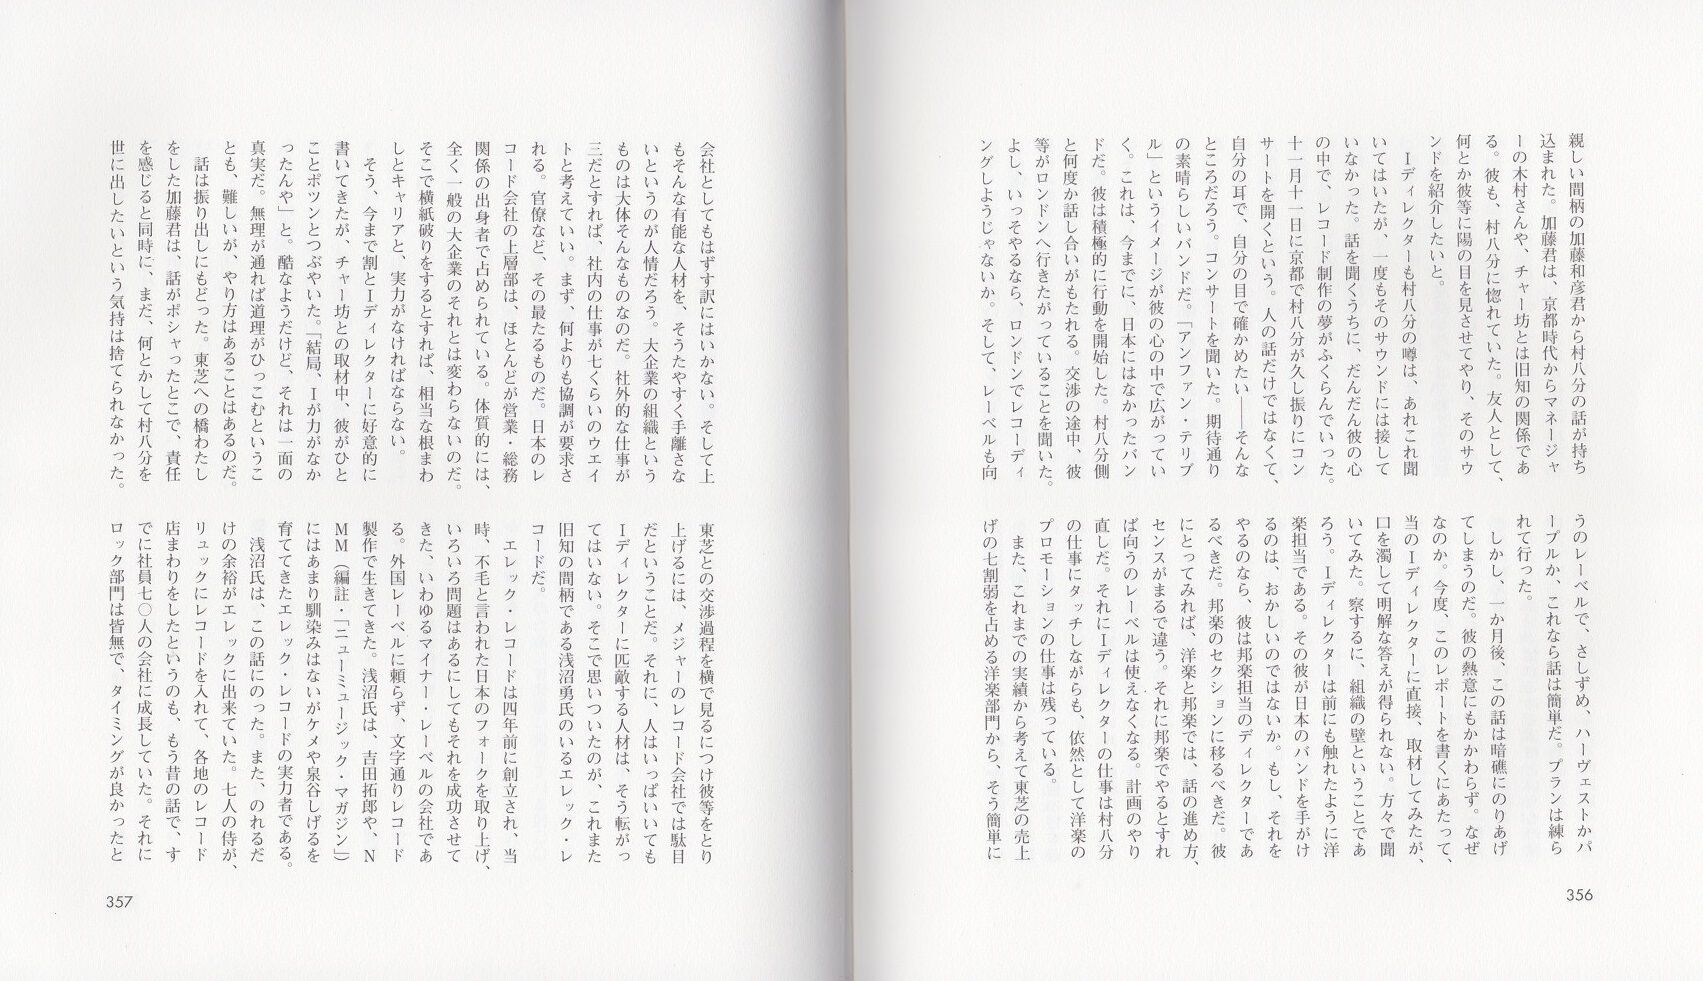 親しい間柄の加藤和彦君から村八分の話が持ち
込まれた。加藤君は、京都時代からマネージャ
ーの木村さんや、チャー坊とは旧知の関係であ
る。彼も、村八分に惚れていた。友人として、
何とか彼等に陽の目を見させてやり、そのサウ
ンドを紹介したいと。
Ｉディレクターも村八分の噂は、あれこれ聞
いてはいたが、一度もそのサウンドには接して
いなかった。話を聞くうちに、だんだん彼の心
の中で、レコード制作の夢がふくらんでいった。
十一月十一日に京都で村八分が久し振りにコン
サートを開くという。人の話だけではなくて、
自分の耳で、自分の目で確かめたい――そんな
ところだろう。コンサートを聞いた。期待通り
の素晴らしいバンドだ。「アンファン・テリブ
ル」というイメージが彼の心の中で広がってい
く。これは、今までに、日本にはなかったバン
ドだ。彼は積極的に行動を開始した。村八分側
と何度か話し合いがもたれる。交渉の途中、彼
等がロンドンへ行きたがっていることを聞いた。
よし、いっそやるなら、ロンドンでレコーディ
ングしようじゃないか。そして、レーベルも向
うのレーベルで、さしずめ、ハーヴェストかパ
ープルか、これなら話は簡単だ。プランは練ら
れて行った。
しかし、一か月後、この話は暗礁にのりあげ
てしまうのだ。彼の熱意にもかかわらず。なぜ
なのか。今度、このレポートを書くにあたって、
当のＩディレクターに直接、取材してみたが、
口を濁して明解な答えが得られない。方々で聞
いてみた。察するに、組織の壁ということであ
ろう。Ｉディレクターは前にも触れたように洋
楽担当である。その彼が日本のバンドを手がけ
るのは、おかしいのではないか。もし、それを
やるのなら、彼は邦楽担当のディレクターであ
るべきだ。邦楽のセクションに移るべきだ。彼
にとってみれば、洋楽と邦楽では、話の進め方、
センスがまるで違う。それに邦楽でやるとすれ
ば向うのレーベルは使えなくなる。計画のやり
直しだ。それにＩディレクターの仕事は村八分
の仕事にタッチしながらも、依然として洋楽の
プロモーションの仕事は残っている。
また、これまでの実績から考えて東芝の売上
げの七割弱を占める洋楽部門から、そう簡単に
356
会社としてもはずす訳にはいかない。そして上
もそんな有能な人材を、そうたやすく手離さな
いというのが人情だろう。大企業の組織という
ものは大体そんなものなのだ。社外的な仕事が
三だとすれば、社内の仕事が七くらいのウエイ
トと考えていい。まず、何よりも協調が要求さ
れる。官僚など、その最たるものだ。日本のレ
コード会社の上層部は、ほとんどが営業・総務
関係の出身者で占められている。体質的には、
全く一般の大企業のそれとは変わらないのだ。
そこで横紙破りをするとすれば、相当な根まわ
しとキャリアと、実力がなければならない。
そう、今まで割とＩディレクターに好意的に
書いてきたが、チャー坊との取材中、彼がひと
ことポツンとつぶやいた。「結局、Ｉが力がなか
ったんや」と。酷なようだけど、それは一面の
真実だ。無理が通れば道理がひっこむというこ
とも、難しいが、やり方はあることはあるのだ。
話は振り出しにもどった。東芝への橋わたし
をした加藤君は、話がポシャったとこで、責任
を感じると同時に、まだ、何とかして村八分を
世に出したいという気持は捨てられなかった。
東芝との交渉過程を横で見るにつけ彼等をとり
上げるには、メジャーのレコード会社では駄目
だということだ。それに、人はいっぱいいても
Ｉディレクターに匹敵する人材は、そう転がっ
てはいない。そこで思いついたのが、これまた
旧知の間柄である浅沼勇氏のいるエレック・レ
コードだ。
エレック・レコードは四年前に創立され、当
時、不毛と言われた日本のフォークを取り上げ、
いろいろ問題はあるにしてもそれを成功させて
きた、いわゆるマイナー・レーベルの会社であ
る。外国レーベルに頼らず、文字通りレコード
製作で生きてきた。浅沼氏は、吉田拓郎や、Ｎ
ＭＭ（編註・「ニューミュージック・マガジン」）
にはあまり馴染みはないがケメや泉谷しげるを
育ててきたエレック・レコードの実力者である。
浅沼氏は、この話にのった。また、のれるだ
けの余裕がエレックに出来ていた。七人の侍が、
リュックにレコードを入れて、各地のレコード
店まわりをしたというのも、もう昔の話で、す
でに社員七〇人の会社に成長していた。それに
ロック部門は皆無で、タイミングが良かったと
357